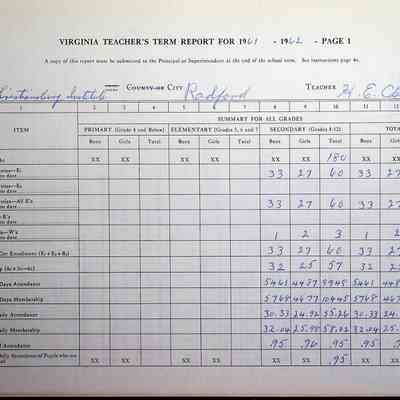 VIRGINIA TEACHER'S TERM REPORT FOR 1961 - 1962 - PAGE 1
A copy of this report must be submitted to the Principal or Superintendent at the end of the school term. See instructions page 4s.
Institute COUNTY OR CITY Radford TEACHER H. E.
1 2 3 4 5 6 7 8 9 10 11 12
ITEM SUMMARY FOR ALL GRADES
PRIMARY (Grade 4 and Below) ELEMENTARY (Grades 5, 6 and 7) SECONDARY (Grades 8-12)
Boys Girls Total Boys Girls Total Boys Girls Total Boys
XX XX XX XX XX XX 180 XX XX
33 27 60 33
33 27 60 33
1 2 3 1
33 27 60 33
32 25 57 32
Days Attendance 5461 4487 9948 5461
Days Membership 5768 4677 10445 5768
Attendance 30.33 24.92 55.26 30.33
Membership 32.04 25.98 58.02 32.04
Attendance .95 .96 .95 .95
XX XX XX XX XX XX .95 XX XX